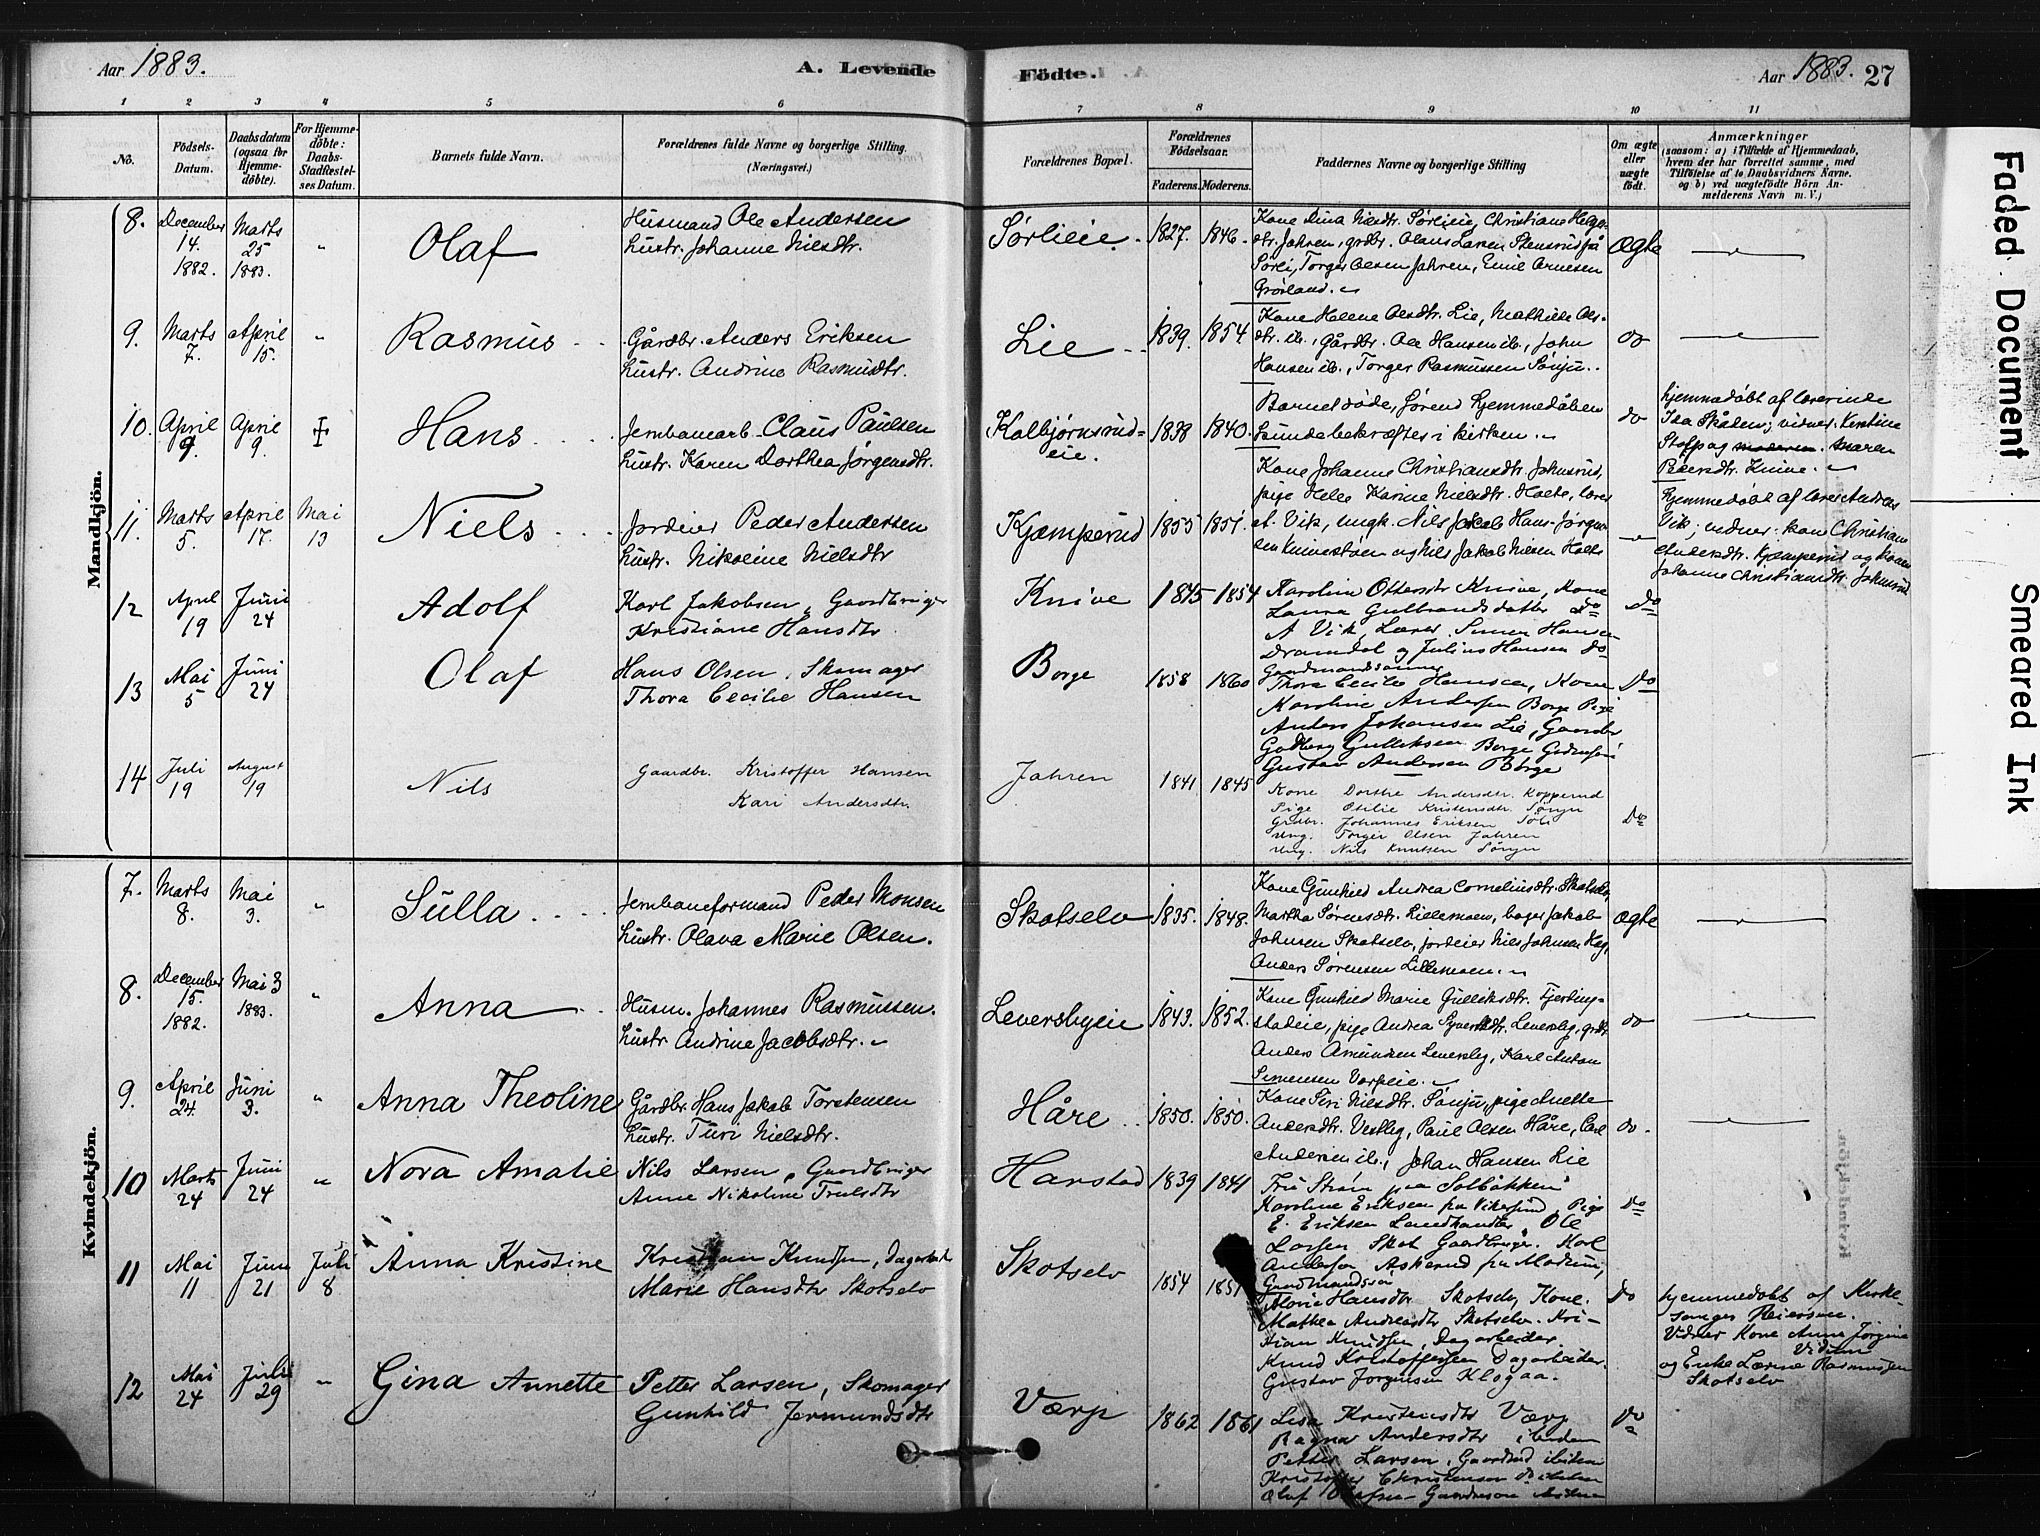 Aar 1883.
A. Levende
Födte.
Aar 1883. 27
1 2 3 4 5 6 7 8 9 10 11
No.
Födsels-Datum.
Daabsdatum (ogsaa for Hjemmedöbte).
For Hjemmedöbte: Daabs-Stadfestelses Datum.
Barnets fulde Navn.
Forældrenes fulde Navne og borgerlige Stilling. (Næringsvei.)
Forældrenes Bopæl.
Forældrenes Födselsaar.
Faderens. Moderens.
Faddernes Navne og borgerlige Stilling
Om ægte eller uægte födt.
Anmærkninger
(saasom: a) i Tilfælde af Hjemmedaab,
hvem der har forrettet samme, med
Tilföielse af to Daabsvidners Navne.
og b) ved uægtefödte Börn Anmelderens Navn m. V.)
Mandkjön.
8. December 14. 1882. Marts 25 1883. " Olaf
Husmand Ole Andersen
hustr. Johanne Nielsdtr.
Sørlieie. 1827. 1846.
Kone Dina Nielsdtr. Sørlieie, Christiane Helges-
dtr. Jahren, grdbr. Olaus Larsen Stensrud på
Sørli, Torger Olsen Jahren, Emil Arnesen
Grøsland.
Ægte
9. Marts 7. April 15. " Rasmus
Gårdbr. Anders Eriksen
hustr. Andrine Rasmusdtr.
Lie 1839. 1854
Kone Helene Olsdtr. Lie, Mathilde Ols-
dtr. ib., Gårdbr. Ole Hansen ib., John
Hansen ib., Torger Rasmussen Sønju.
do
10. April 9. April 9. Hans
Jernbanearb. Claus Paulsen
hustr. Karen Dorthea Jørgensdtr.
Kolbjørnsrud-
eie. 1838 1840.
Barnet døde, førend hjemmedåben
kunde bekræftes i kirken.
do
hjemmedøbt af lærerinde
Isa Skålen; vidner: Kirstine
Stopp og Maren
Pedersdtr. Knive.
11. Marts 5. April 17. Mai 13 Niels
Jordeier Peder Andersen
hustr. Nikoline Nielsdtr
Kjæmperud 1855 1851.
Kone Johanne Christiansdtr. Johnsrud,
pige Helle Karine Nielsdtr. Holte, lærer
A. Vik, ungk. Nils Jakob Hans Jørgen-
sen Knivestøen og Nils Jakob Nielsen Holte
hjemmedøbt af lærer Andreas
Vik; vidner: kone Christiane
Andersdtr. Kjæmperud og kone
Johanne Christiansdtr. Johnsrud
12 April 19 Juni 24 Adolf
Karl Jakobsen, Gaardbruger
Kristiane Hansdtr.
Knive 1845 1854
Karoline Ottersdtr Knive, Kone
Laura Gulbrandsdatter Do
A Vik, Lærer. Simen Hansen
Dramdal og Julius Hansen Do
Gaardmandssønner
Do
13 Mai 5 Juni 24 Olaf
Hans Olsen, Skomager
Thora Cecilie Hansen
Borge 1858 1860
Thora Cecilie Hansen, Kone
Karoline Andersen Borge Pige
Anders Johansen Lie, Gaardbr
Gulleksen Borge
Gustav Andersen Borge
Do
14 Juli 19 August 19 Nils
Gaardbr. Kristoffer Hansen
Kari Andersdtr.
Jahren 1841 1845
Kone Dorthe Andersdtr. Kopperud
Pige Otilie Kristensdtr. Sønju
Grdbr. Johannes Eriksen
Ung. Torger Olsen Jahren
Ung. Nils Knutsen Sønju
Do
Kvindekjön.
7. Marts 8. Mai 3. " Sulla
Jernbaneformand Peder Monsen
hustr. Olava Marie Olsen.
Skotselv 1835. 1848.
Kone Gunhild Andrea Corneliusdtr. Skotselv,
Martha Sørensdtr. Lillemoen, bager Jakob
Johnsen Skotselv, jordeier Nils Johnsen Hag,
Anders Sørensen Lillemoen.
Ægte
8. December 15. 1882. Mai 3 1883. " Anna
Husm. Johannes Rasmussen.
hustr Andrine Jacobsdtr.
Leversbyeie 1843. 1852.
Kone Gunhild Marie Gulliksdtr. Fjerding-
stadeie, pige Andrea Syversdtr. Leversby, grdbr
Anders Amundsen Leversby, Karl Anton
Simensen Varpeie.
do
9. April 24. Juni 3. " Anna Theoline
Gårdbr. Hans Jakob Torstensen
hustr. Turi Nielsdtr.
Håre 1850. 1850.
Kone Siri Nielsdtr. Sønju, pige Anette
Andersdtr. Vestby, Paul Olsen Håre, Carl
Andersen ib., Johan Hansen Lie
do.
10 Marts 24 Juni 24 " Nora Amalie
Nils Larsen, Gaardbruger
Anne Nikoline Trulsdtr
Harstad 1839 1841
Fru Strøm paa Solbakken
Karoline Eriksen fra Vikersund, Pige
E. Eriksen Landhandler, Ole
Larsen Skot Gaardbruger. Karl
Andersen Askerud fra Modum,
Gaardmandssøn
Do
11 Mai 11 Juni 21 Juli 8 Anna Kristine
Kristian Knudsen, Dagarbeid
Marie Hansdtr Skotselv
Skotselv 1854 1851
Marie Hansdtr Skotselv, Kone.
Mathea Andreasdtr Skotselv. Kri-
stian Knudsen, Dagarbeider
Knud Kristoffersen Dagarbeider
Gustav Jørgensen Klogaa.
Do
hjemmedøbt af Kirke-
sanger Reiersen.
Vidner Kone Anne Jørgine
og Enke Lærine Rasmussen
Skotselv
12 Mai 24 Juli 29 " Gina Annette
Petter Larsen, Skomager
Gunhild Jermundsdtr
Værp 1862 1861
Lisa Kristensdtr Værp
Ragna Andersdtr ibidem
Petter Larsen, ibidem
Kristoffer Christensen do ibidem
Oluf
Do
Faded Document
Smeared Ink